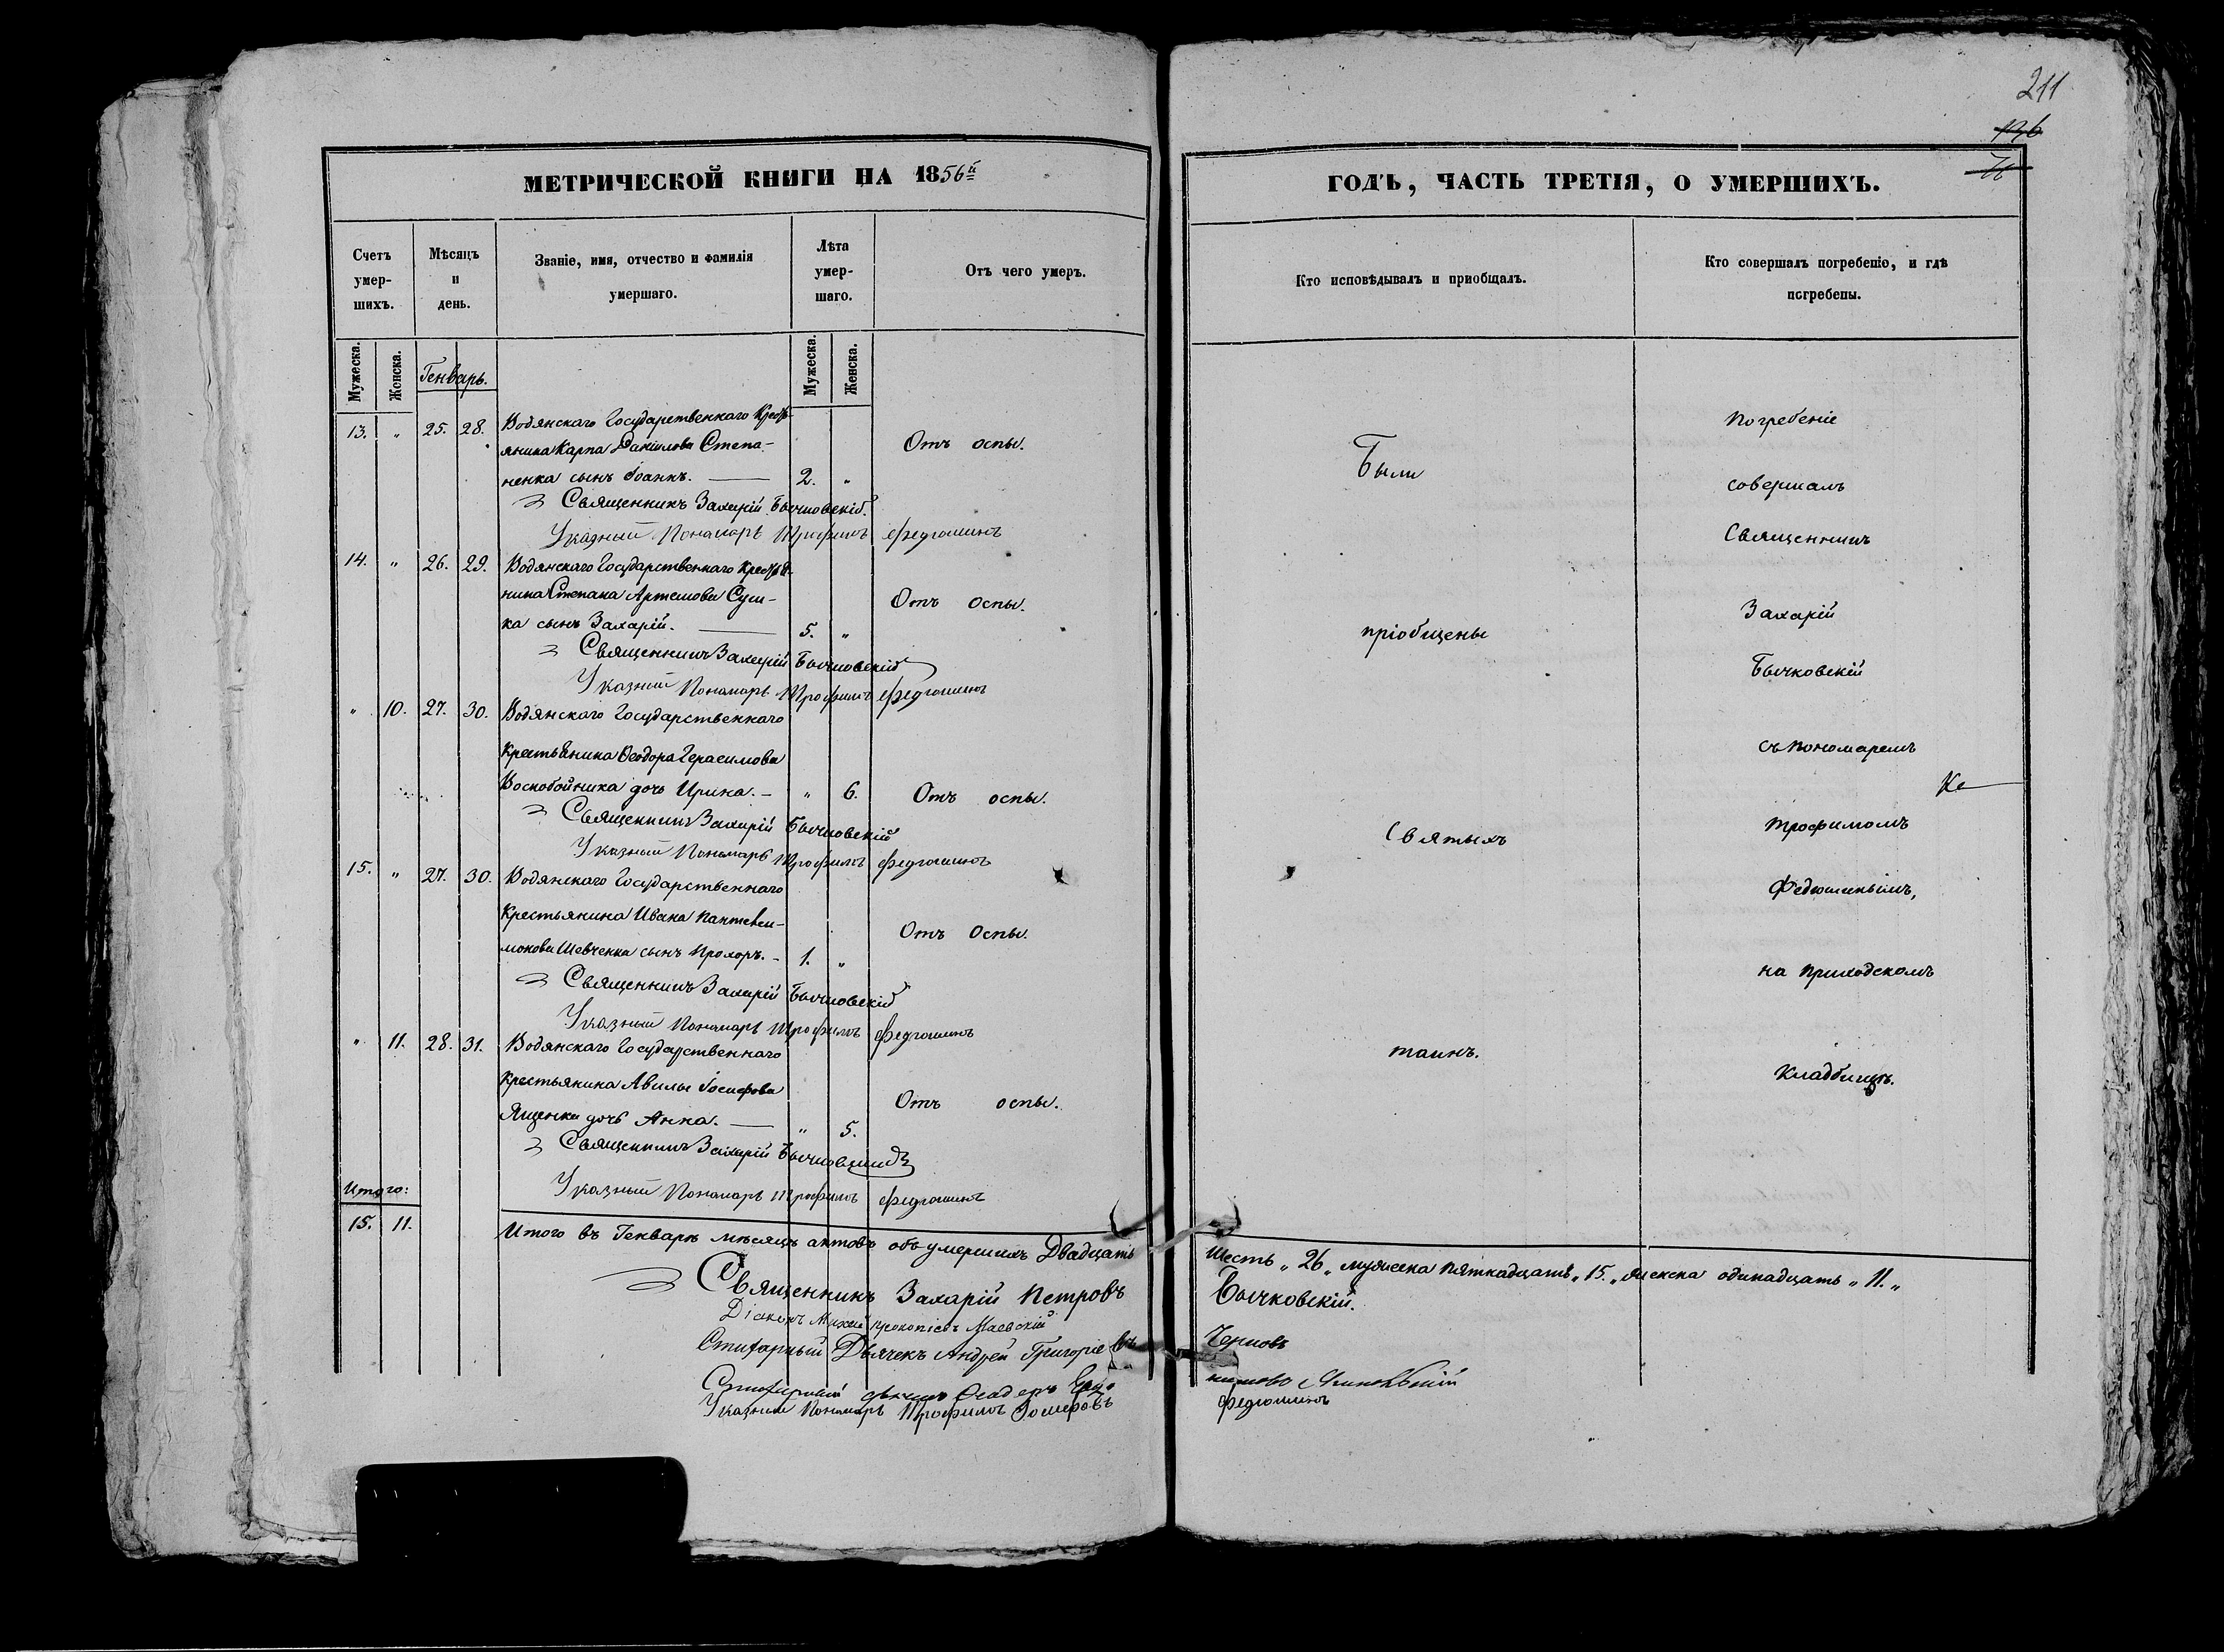 211
МЕТРИЧЕСКОЙ КНИГИ НА 1856й
ГОДЪ, ЧАСТЬ ТРЕТІЯ, О УМЕРШИХЪ.
Счетъ умер-шихъ.
Мѣсяцъ и день.
Званіе, имя, отчество и фамилія умершаго.
Лѣта умер-шаго.
Отъ чего умеръ.
Кто исповѣдывалъ и приобщалъ.
Кто совершалъ погребеніе, и гдѣ погребены.
Мужеска.
Женска.
Генварь.
Мужеска.
Женска.
13. „ 25. 28. Водянскаго Государственнаго Кресть-
янина Карпа Даніилова Степа-
ненка сынъ Іоаннъ. — 2. „ Отъ оспы.
Священникъ Захарій Бычковскій.
Указный Пономарь Трофимъ Федюшинъ
14. „ 26. 29. Водянскаго Государственнаго Крестья-
нина Степана Артемова Суш-
ка сынъ Захарій. — 5. „ Отъ оспы.
Священникъ Захарій Бычковскій
Указный Пономарь Трофимъ Федюшинъ
„ 10. 27. 30. Водянскаго Государственнаго
Крестьянина Ѳеодора Герасимова
Воскобойника дочь Ирина. — „ 6. Отъ оспы.
Священникъ Захарій Бычковскій
Указный Пономарь Трофимъ Федюшинъ
15. „ 27. 30. Водянскаго Государственнаго
Крестьянина Ивана Пантелеи-
монова Шевченка сынъ Прохоръ. — 1. „ Отъ Оспы.
Священникъ Захарій Бычковскій
Указный Пономарь Трофимъ Федюшинъ
„ 11. 28. 31. Водянскаго Государственнаго
Крестьянина Авилы Іосифова
Ященка дочь Анна. — „ 5. Отъ оспы.
Священникъ Захарій Бычковскій
Указный Пономарь Трофимъ Федюшинъ
Итого:
15. 11.
Были
пріобщены
Святыхъ
таинъ.
Погребеніе
совершалъ
Священникъ
Захарій
Бычковскій
съ пономаремъ
Трофимомъ
Федюшинымъ,
на приходскомъ
Кладбищѣ.
Итого въ Генварѣ мѣсяцѣ актовъ объ умершихъ Двадцать Шесть „26„ мужеска пятнадцать „15.„ женска одинадцать „11.„
Священникъ Захарій Петровъ Бычковскій.
Діаконъ Прокопіевъ Маевскій
Стихарный Дьячекъ Андрей Григоріевъ Черновъ
Стихарный
Указный Пономарь Трофимъ Іосифовъ Федюшинъ